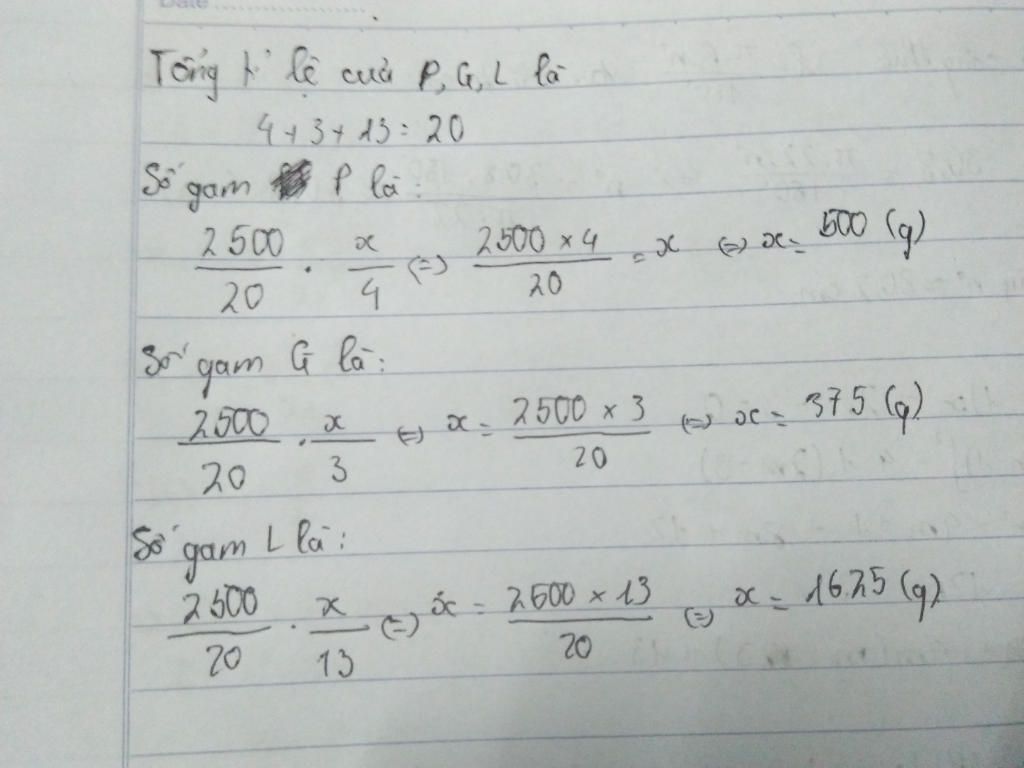 Date
Tổng tỉ lệ của P, G, L là
4 + 3 + 13 = 20
Số gam P là:
2500/20 . x/4 (=) 2500 × 4/20 = x (=) x = 500 (g)
Số gam G là:
2500/20 . x/3 (=) x = 2500 × 3/20 (=) x = 375 (g)
Số gam L là:
2500/20 . x/13 (=) x = 2500 × 13/20 (=) x = 1625 (g)